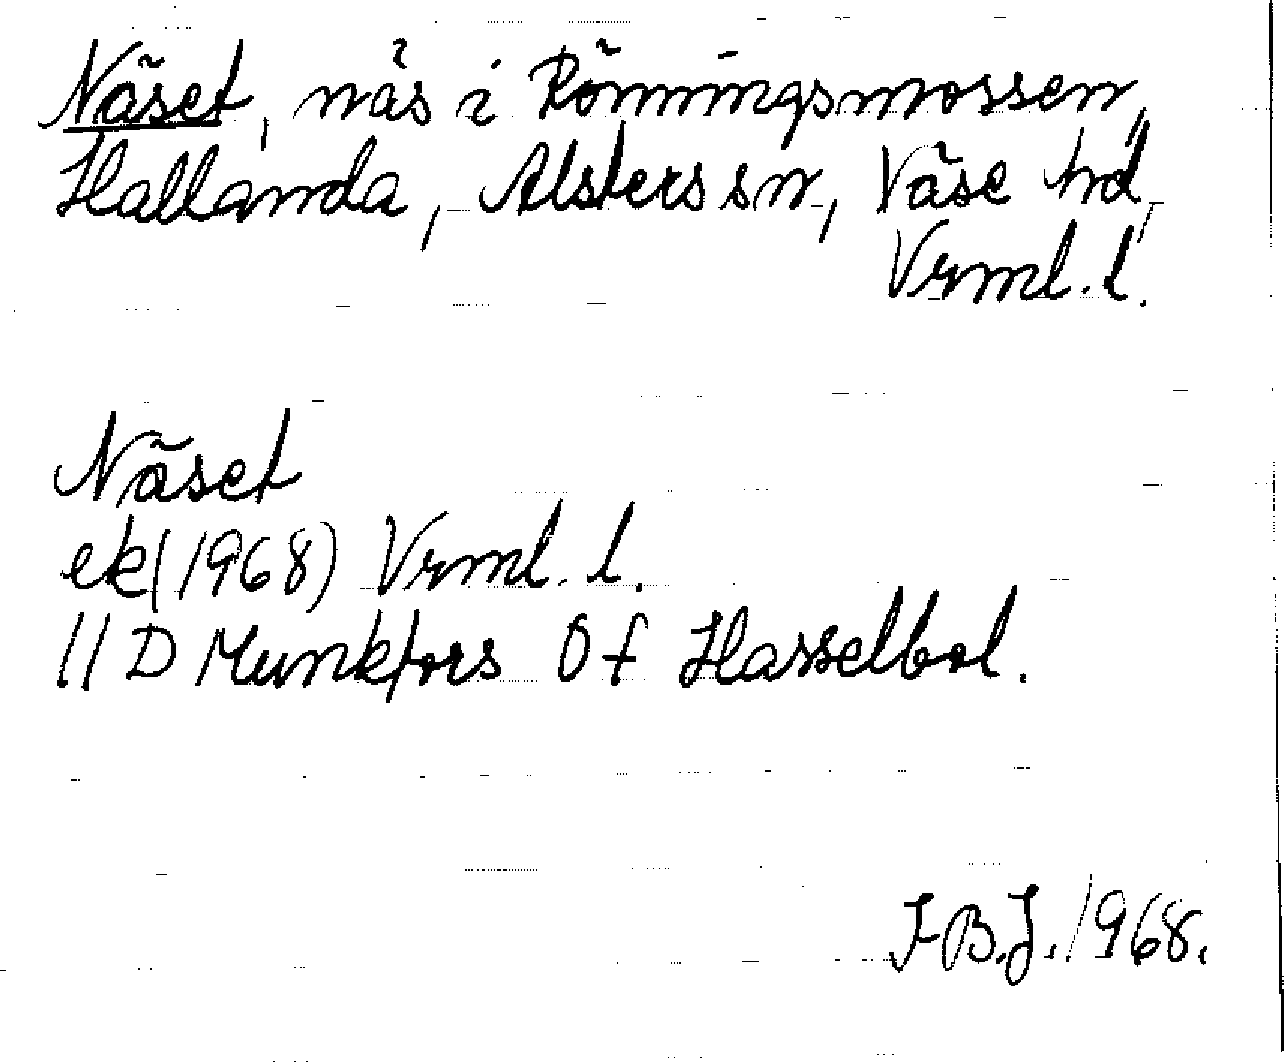 Näset, näs i Rönningsmossen,
Hallanda, Alsters sn, Väse hd,
Vrml. l.
Näset
ek (1968) Vrml. l.
11 D Munkfors 0 f Hasselbol.
F B.J. 1968.